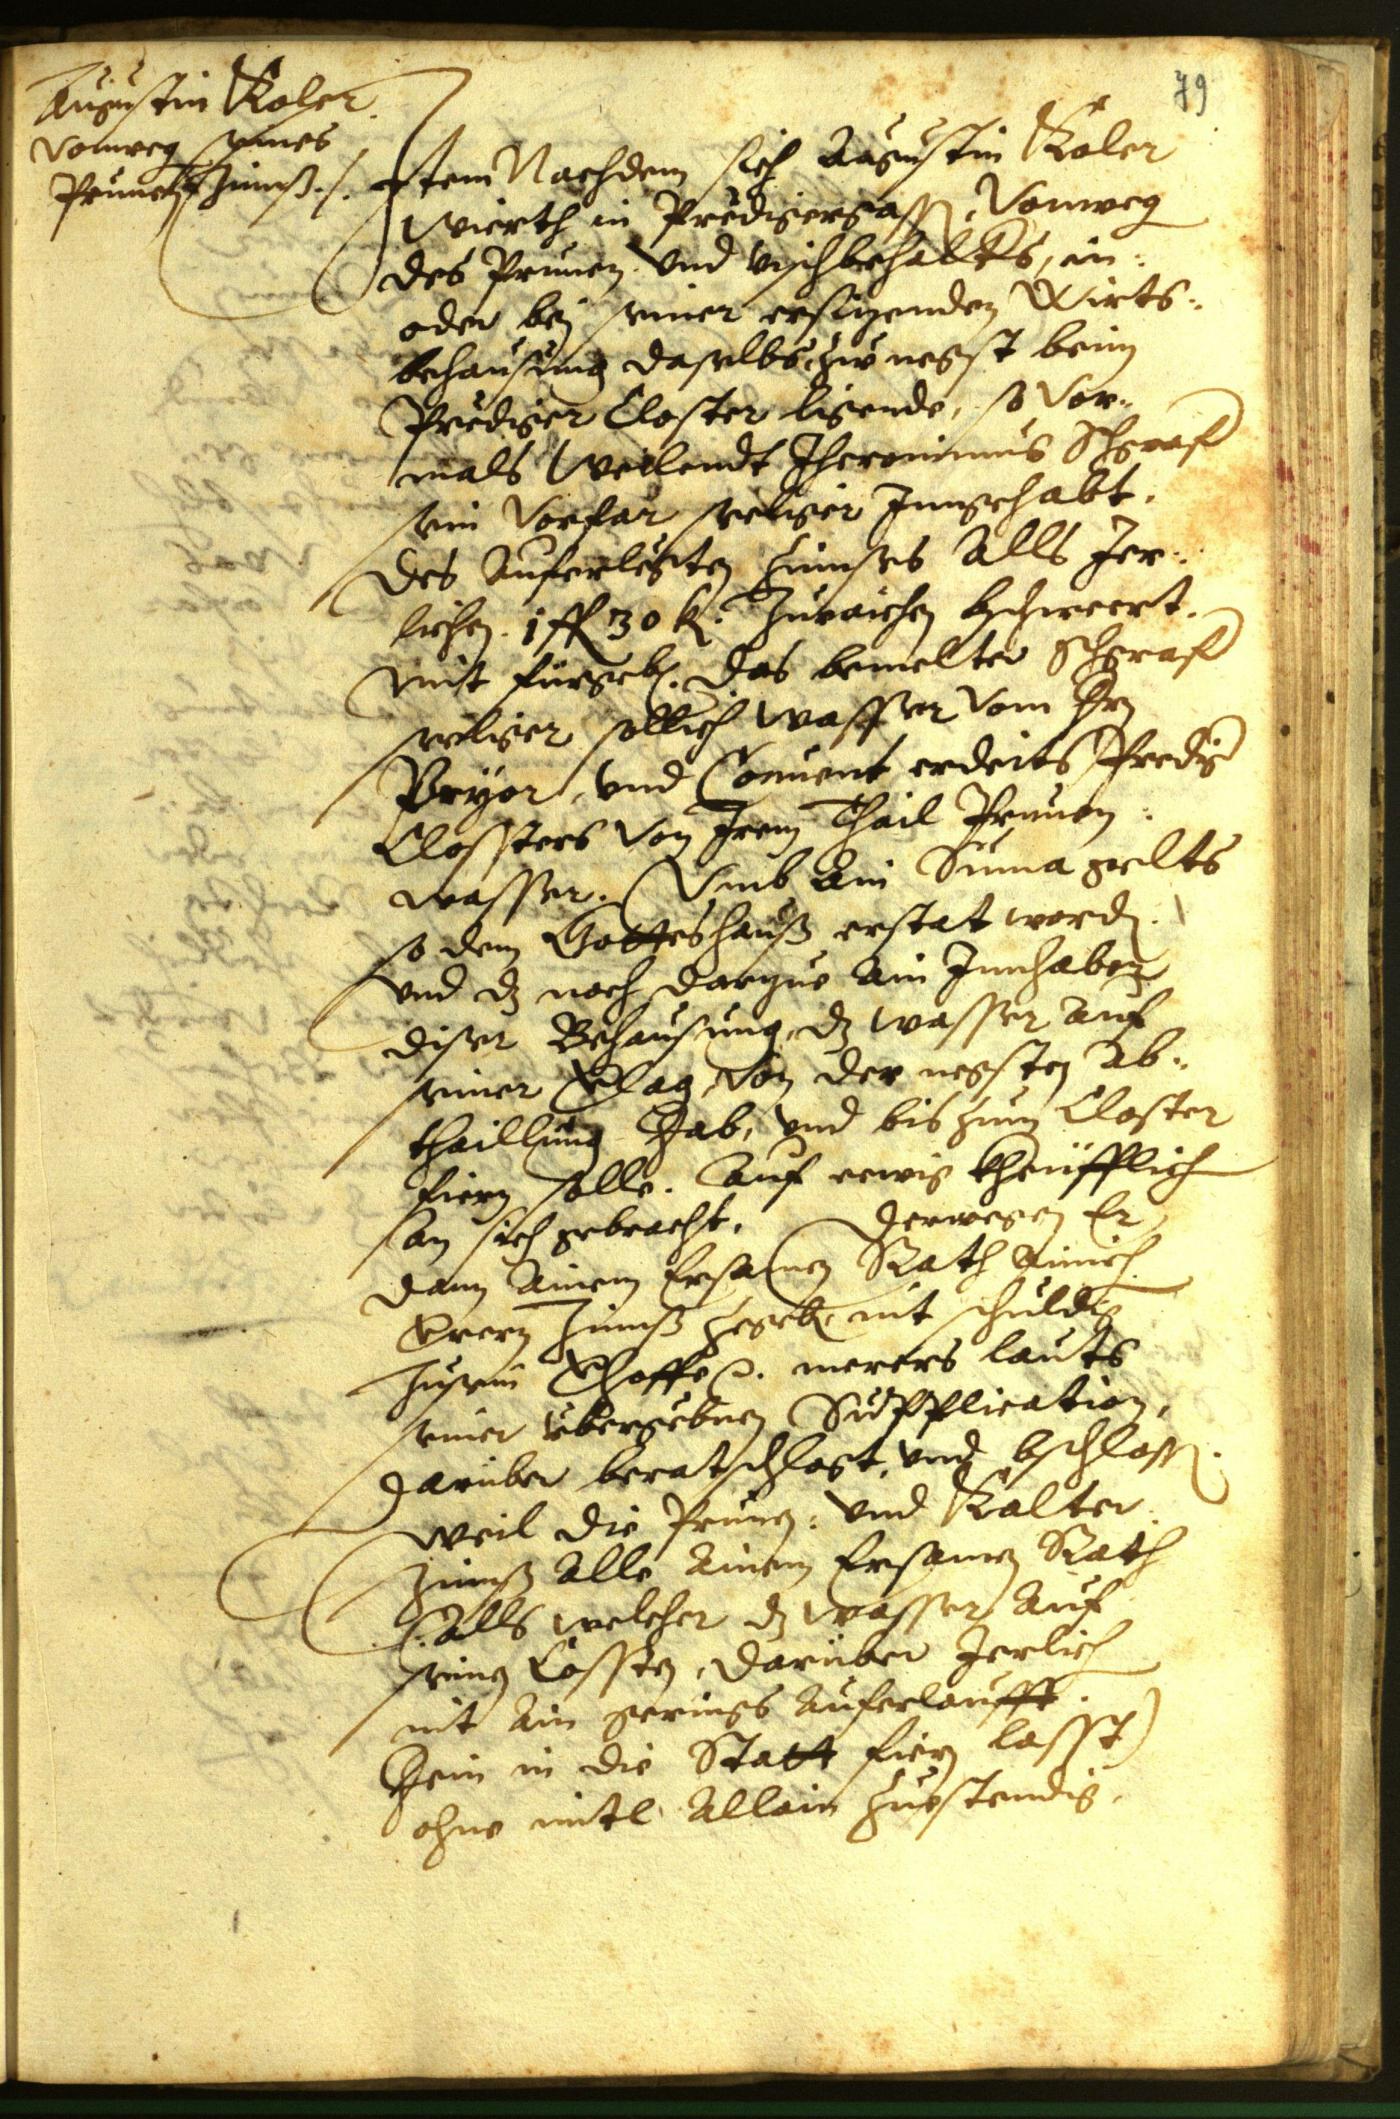 79
Augustin Koler.
Vonweg seines
Prunen Zinnß ./.
Item Nachdem sich Augustin Koler
Wierth in Predigergassn, Vonweg
des Prunen und vischbehalts, in-
oder bej seiner ersizenden Wirts-
behausung daselbs zu negst beim
Prediger Closter ligende, so vor-
mals Weilendt Iheronimus Schgraf
sein Vorfar seeliger Inngehabt,
des Auferlegten Zinnses Alls Jer-
lichen 1 fl 30 k. Zuraichen bschweert.
mit fürgeb. das bemelter Schgraf
seeliger sollich wasser vom Hrn
Pryor, und Conuent erdeits Predig
Clossters von Jrem Thail Prunen-
wasser. Umb ain Suma gelts
so dem Gotteshauß erstat word.
und dz noch darzue ain Innhaber
diser Behausung, dz wasser auf
seiner Chag, von der negsten Ab-
thaillung Hab, und bis zum Closter
fiern solle. auf eewig kheüfflich
an sich gebracht. Derwegen Er
dann ainem Ersamen Rath ainich
Zinnß zegeb nit schuldig
zusein Hoffe. merers lauts
seiner übergebnen Supplication,
Darüber beratschlagt, und bschloss.
Weil die Prunen- und Kalter
Zinnß alle ainem Ersamen Rath
/: alls welcher dz wasser auf
seinen Cossten, darüber Jerlich
nit ain gerings auferlaufft.
Hein in die Statt fiern lasst)
ohne mitl allain zuestendig,